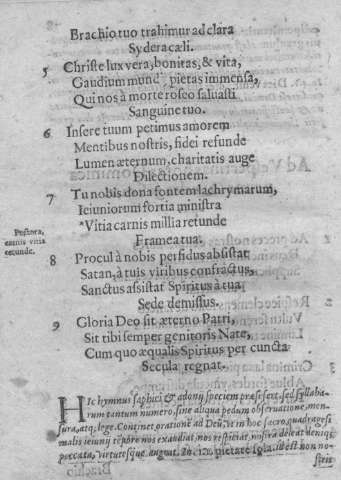 Brachio tuo trahimur ad clara
Sydera cæli.
5 Christe lux vera, bonitas, & vita,
Gaudium mundi, pietas immensa,
Qui nos à morte roseo saluasti
Sanguine tuo.
6 Insere tuum petimus amorem
Mentibus nostris, fidei refunde
Lumen æternum, charitatis auge
Dilectionem.
7 Tu nobis dona fontem lachrymarum,
Ieiuniorum fortia ministra
*Vitia carnis millia retunde
Framea tua.
Postera,
carnis vitia
retunde.
8 Procul à nobis perfidus absistat
Satan, à tuis viribus confractus,
Sanctus assistat Spiritus à tua
Sede demissus.
9 Gloria Deo sit æterno Patri,
Sit tibi semper genitoris Nate,
Cum quo æqualis Spiritus per cuncta
Secula regnat.
Hic hymnus saphici & adony speciem præ se fert, sed syllaba-
rum tantum numero, sine aliqua pedum obseruatione, men-
sura, atq; lege. Continet orationē ad Deū, vt in hoc sacro quadragesi
malis ieiunij tēpore nos exaudiat, nos respiciat, nostra deleat deniq;
peccata, virtutesque augeat. In
pietate sola. id est non no-
stris
Brachio